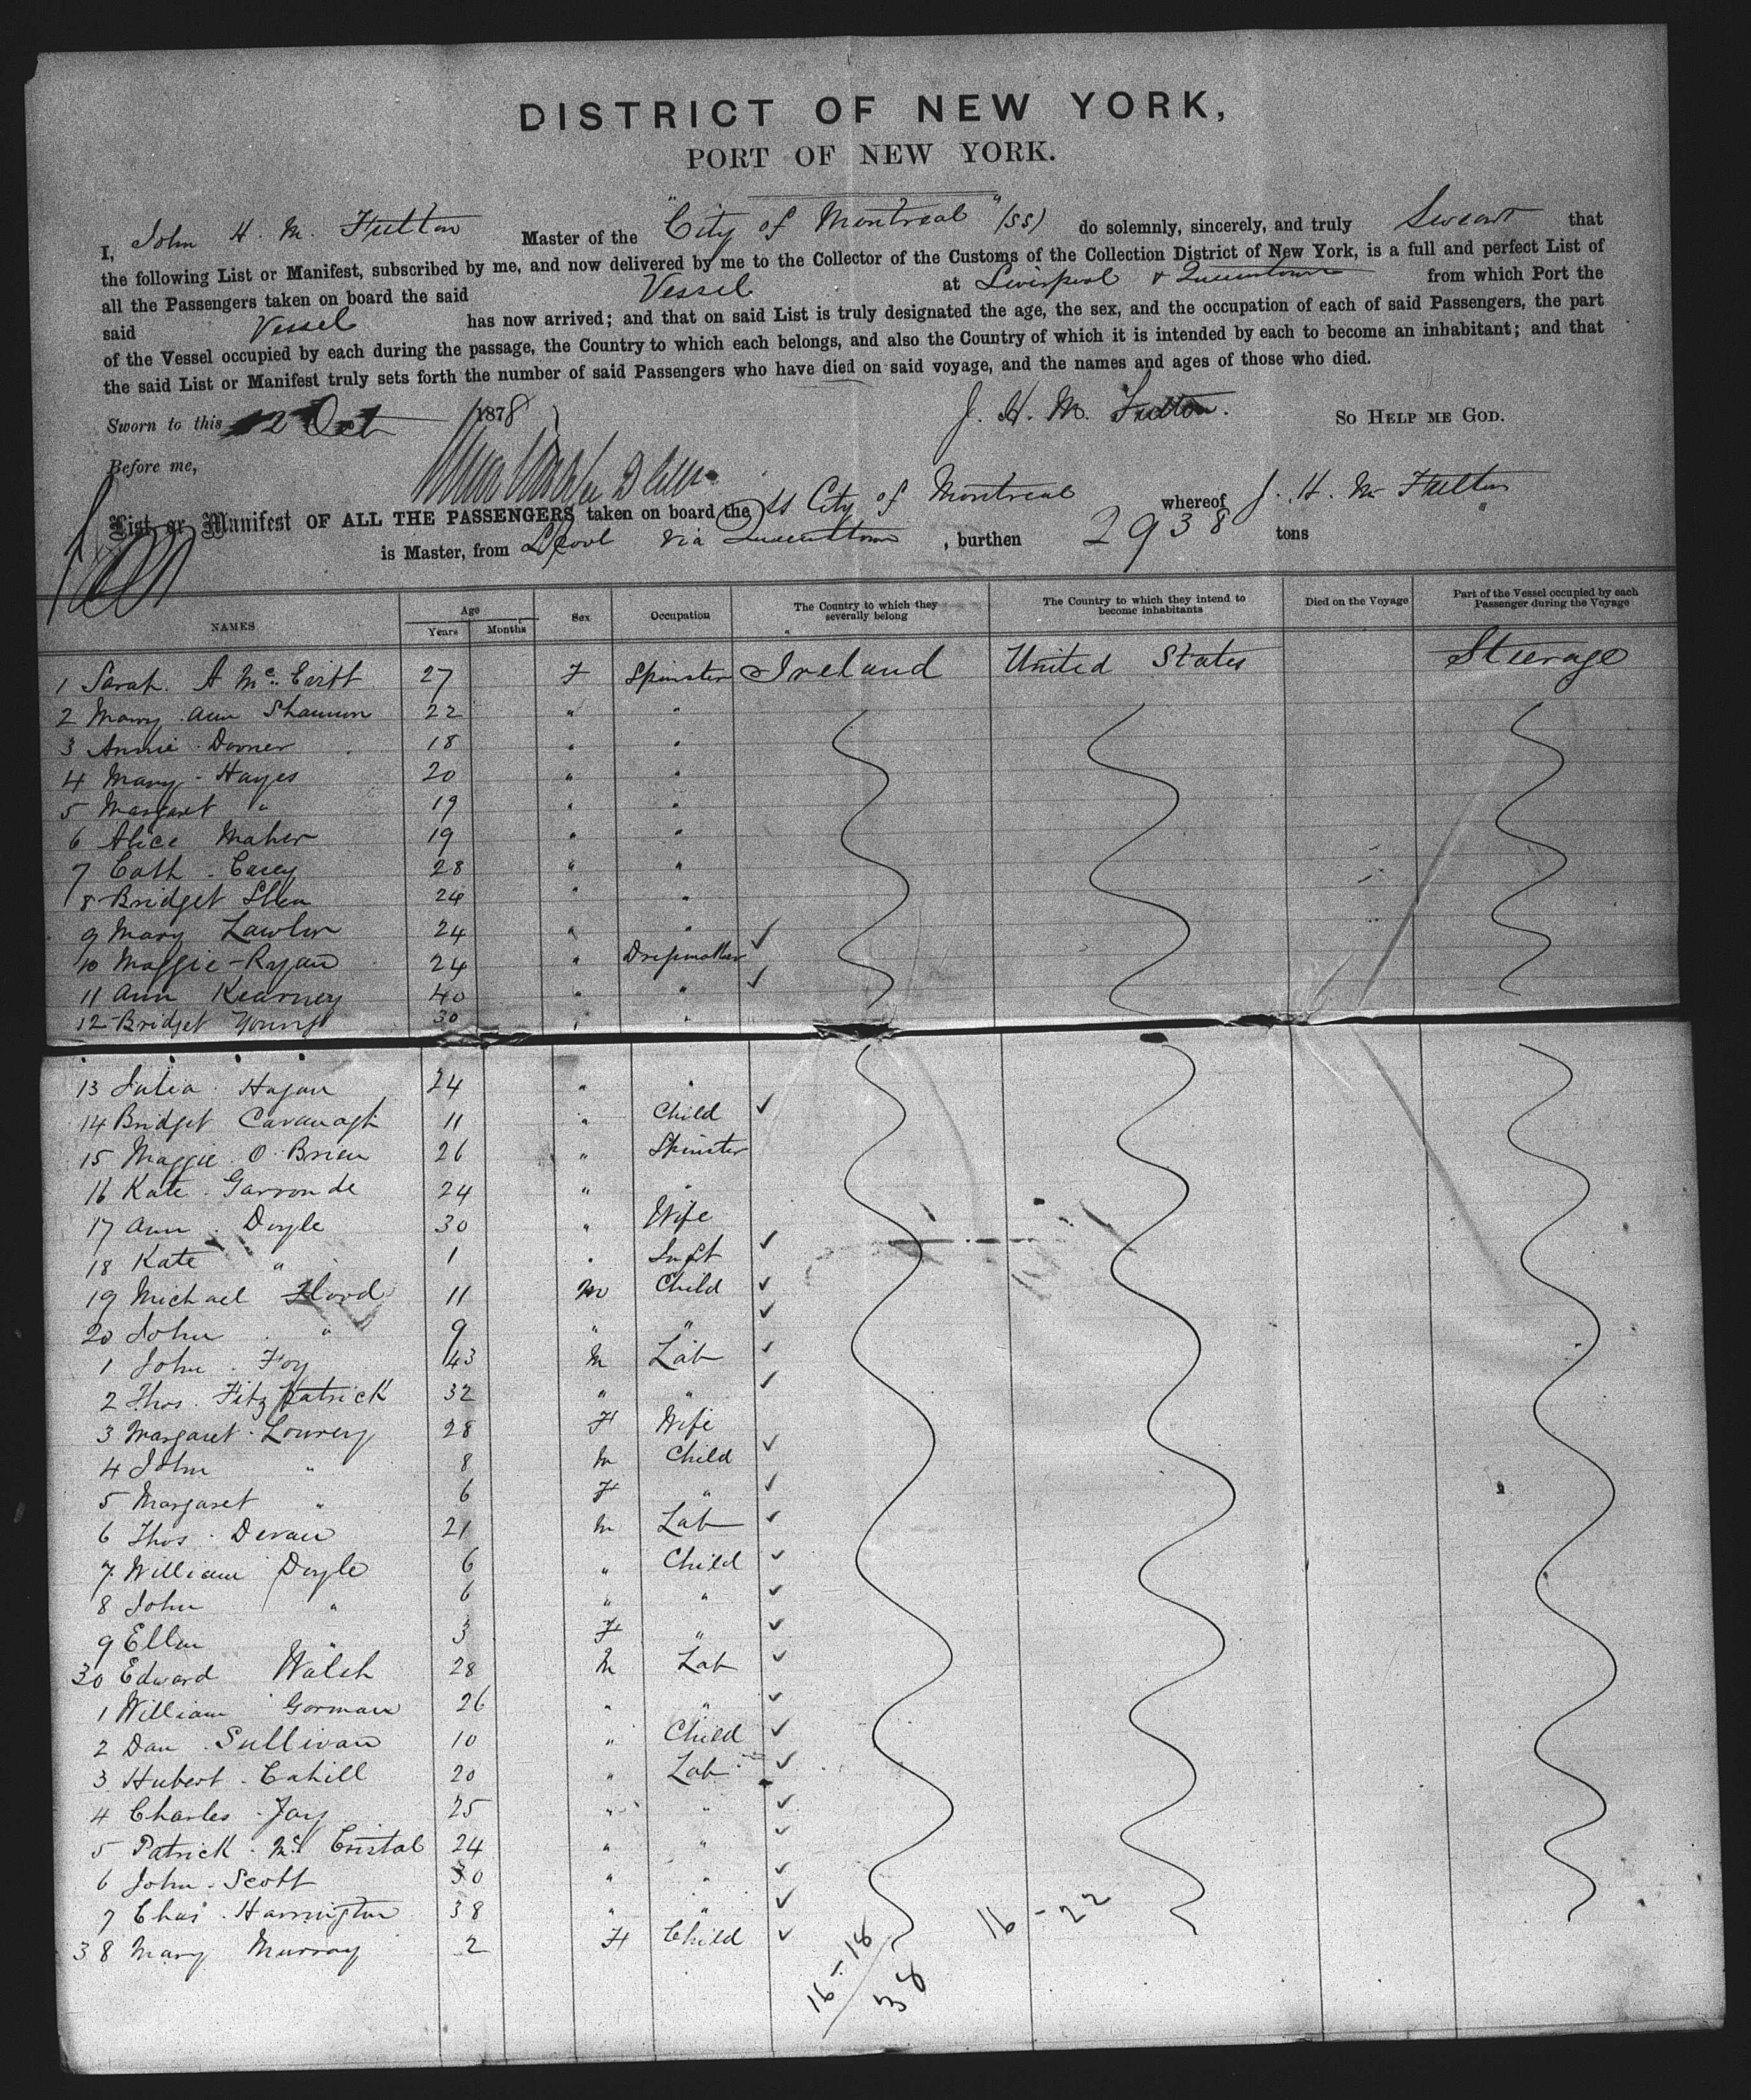 DISTRICT OF NEW YORK,
PORT OF NEW YORK.
I, John H. M. Fulton Master of the "City of Montreal" (SS) do solemnly, sincerely, and truly Swear that
the following List or Manifest, subscribed by me, and now delivered by me to the Collector of the Customs of the Collection District of New York, is a full and perfect List of
all the Passengers taken on board the said Vessel at Liverpool & Queenstown from which Port the
said Vessel has now arrived; and that on said List is truly designated the age, the sex, and the occupation of each of said Passengers, the part
of the Vessel occupied by each during the passage, the Country to which each belongs, and also the Country of which it is intended by each to become an inhabitant; and that
the said List or Manifest truly sets forth the number of said Passengers who have died on said voyage, and the names and ages of those who died.
Sworn to this 12 Oct 1878 J. H. M. Fulton. SO HELP ME GOD.
Before me,
List or Manifest OF ALL THE PASSENGERS taken on board the SS City of Montreal whereof J. H. M Fulton
is Master, from L'pool via Queenstown, burthen 2938 tons
NAMES Age Years Months Sex Occupation The Country to which they severally belong The Country to which they intend to become inhabitants Died on the Voyage Part of the Vessel occupied by each Passenger during the Voyage
1 Sarah. A Mc. 27 F Spinster Ireland United States Steerage
2 Mary Ann Shannon 22 " "
3 Annie 18 " "
4 Mary Hayes 20 " "
5 Margaret " 19 " "
6 Alice Maher 19 " "
7 Cath Casey 28 " "
8 Bridget Shea 24 " "
9 Mary Lawlor 24 " "
10 Maggie Ryan 24 " Dressmaker
11 Ann Kearney 40 " "
12 Bridget Young 30 " "
13 Julia Hagan 24 " "
14 Bridget Cavanagh 11 " Child
15 Maggie O Brien 26 " Spinster
16 Kate 24 " "
17 Ann Doyle 30 " Wife
18 Kate " 1 " Inft
19 Michael Flood 11 M Child
20 John " 9 " "
1 John Foy 43 M Lab
2 Thos. Fitzpatrick 32 " "
3 Margaret Lowery 28 F Wife
4 John " 8 M Child
5 Margaret " 6 F "
6 Thos. Devau 21 M Lab
7 William Doyle 6 " Child
8 John " 6 " "
9 Ellen " 3 F "
30 Edward Walsh 28 M Lab
1 William Gorman 26 " "
2 Dan Sullivan 10 " Child
3 Hubert Cahill 20 " Lab
4 Charles Jay 25 " "
5 Patrick Mc Cristal 24 " "
6 John Scott 30 " "
7 Chas Harrington 38 " "
38 Mary Murray 2 F Child
16-18
38
16-22